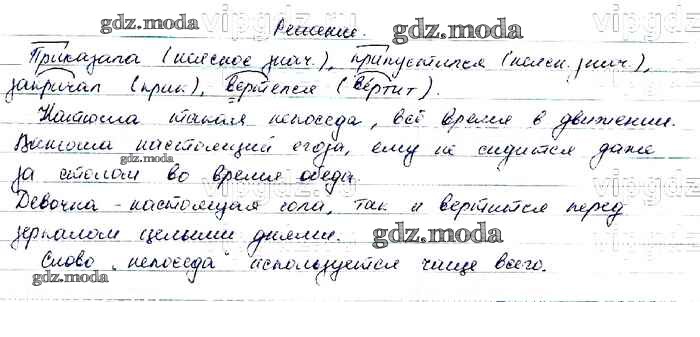 Решение.
Приказала (неясное знач.), припустился (неясн. знач.),
закричал (крик), вертелся (вертит).
Настоша такая непоседа, всё время в движении.
Ванюша настоящий егоза, ему не сидится даже
за столом во время обеда.
Девочка - настоящая юла, так и вертится перед
зеркалом целыми днями.
Слово "непоседа" используется чаще всего.
gdz.moda
gdz.moda
gdz.moda
gdz.moda
gdz.moda
vipgdz.ru
vipgdz